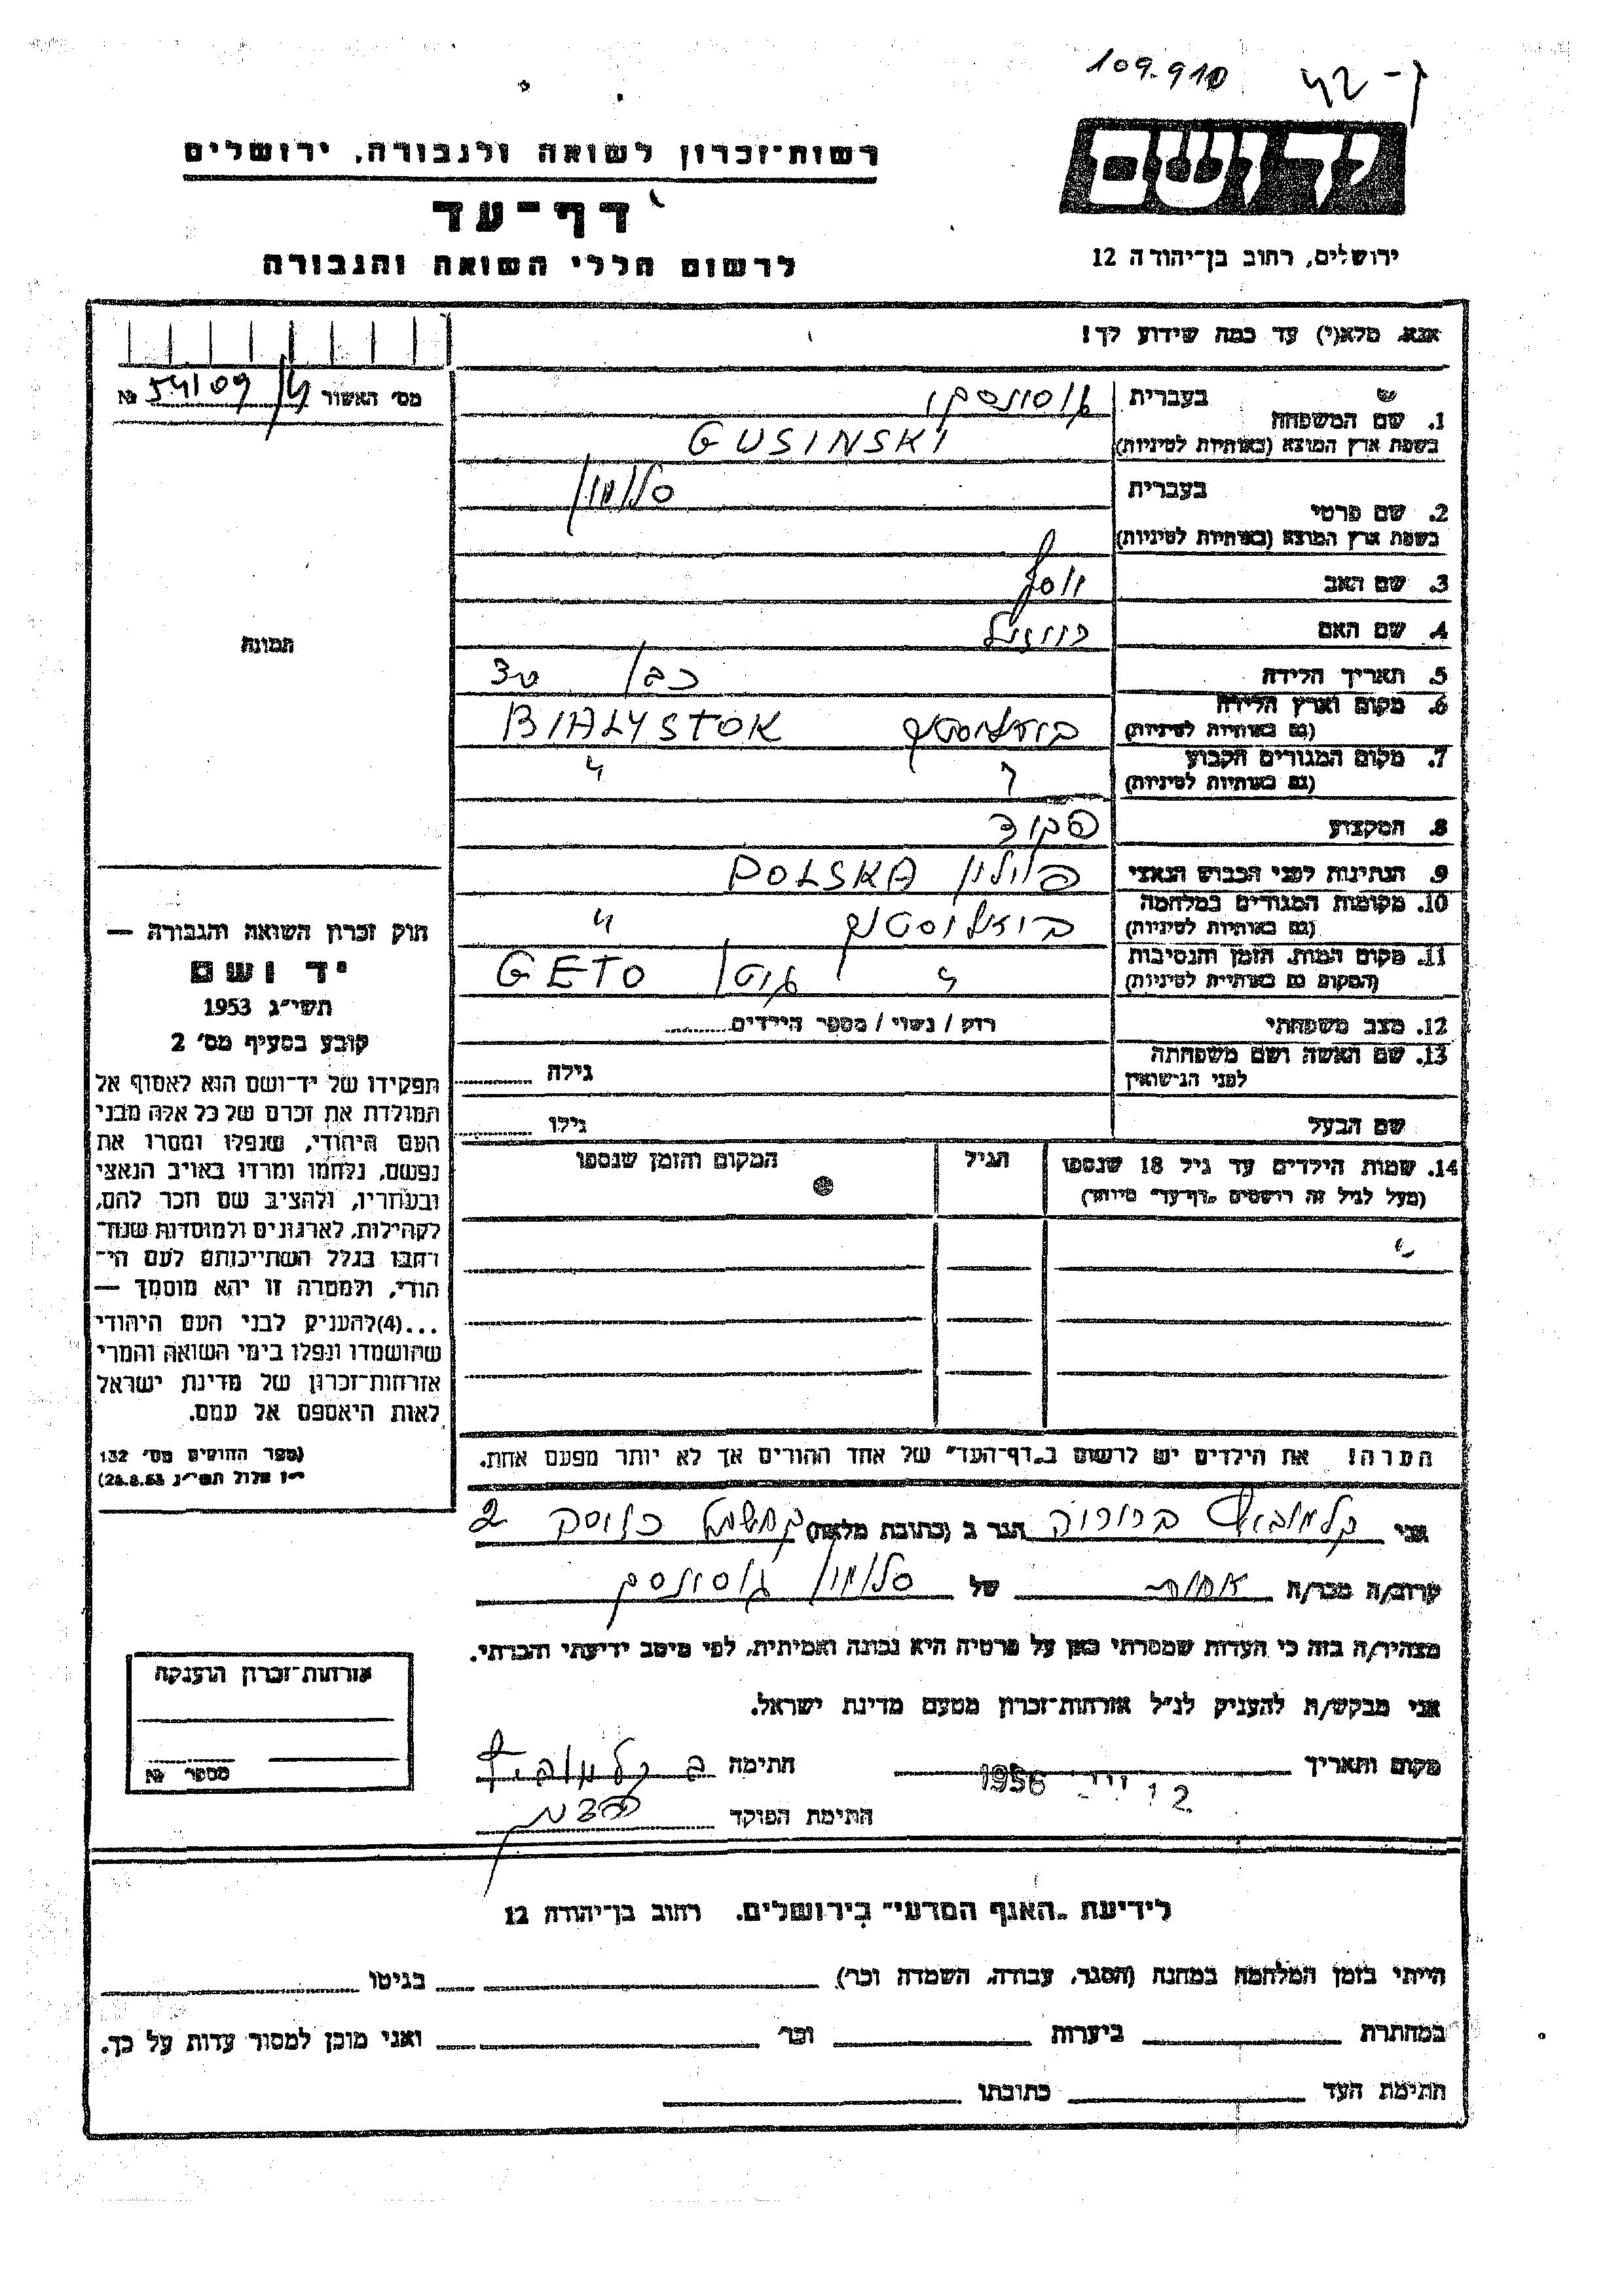 109.910 42-ק
רשות-זכרון לשואה ולגבורה, ירושלים
יד ושם
דף-עד
לרשום חללי השואה והגבורה
ירושלים, רחוב בן-יהודה 12
אנא, מלא(י) עד כמה שידוע לך!
מס' האשור № 54109
1. שם המשפחה בעברית גוסינסקי
בשפת ארץ המוצא (באותיות לטיניות) GUSINSKI
2. שם פרטי בעברית סלומון
בשפת ארץ המוצא (באותיות לטיניות)
3. שם האב יוסף
4. שם האם
תמונה
5. תאריך הלידה בן 30
6. מקום וארץ הלידה ביאליסטוק BIALYSTOK
(גם באותיות לטיניות)
7. מקום המגורים הקבוע " "
(גם באותיות לטיניות)
8. המקצוע פקיד
9. הנתינות לפני הכבוש הנאצי פולין POLSKA
10. מקומות המגורים במלחמה ביאליסטוק "
(גם באותיות לטיניות)
11. מקום המות, הזמן והנסיבות " גיטו GETO
(המקום גם באותיות לטיניות)
12. מצב משפחתי רווק / נשוי / מספר הילדים
13. שם האשה ושם משפחתה לפני הנישואין גילה
שם הבעל גילו
14. שמות הילדים עד גיל 18 שנספו הגיל המקום והזמן שנספו
(מעל לגיל זה רושמים "דף-עד" מיוחד)
הערה! את הילדים יש לרשום ב"דף-העד" של אחד ההורים אך לא יותר מפעם אחת.
חוק זכרון השואה והגבורה —
יד ושם
תשי"ג 1953
קובע בסעיף מס' 2
תפקידו של יד-ושם הוא לאסוף אל
המולדת את זכרם של כל אלה מבני
העם היהודי, שנפלו ומסרו את
נפשם, נלחמו ומרדו באויב הנאצי
ובעוזריו, ולהציב שם וזכר להם,
לקהילות, לארגונים ולמוסדות שנח-
רבו בגלל השתייכותם לעם הי-
הודי, ולמטרה זו יהא מוסמך —
...(4) להעניק לבני העם היהודי
שהושמדו ונפלו בימי השואה והמרי
אזרחות-זכרון של מדינת ישראל
לאות היאספם אל עמם.
(ספר החוקים מס' 132
י"ז אלול תשי"ג 28.8.53)
אני קלמוביץ ברוריה הגר ב (כתובת מלאה) 2
קרוב/ה מכר/ה אחות של סלומון גוסינסקי
מצהיר/ה בזה כי העדות שמסרתי כאן על פרטיה היא נכונה ואמיתית, לפי מיטב ידיעתי והכרתי.
אני מבקש/ת להעניק לנ"ל אזרחות-זכרון מטעם מדינת ישראל.
מקום ותאריך 1956 חתימה ב קלמוביץ
חתימת הפוקד
אזרחות-זכרון הוענקה
מספר №
לידיעת "האגף המדעי" בירושלים, רחוב בן-יהודה 12
הייתי בזמן המלחמה במחנה (הסגר, עבודה, השמדה וכו') בגיטו
במחתרת ביערות וכו' ואני מוכן למסור עדות על כך.
חתימת העד כתובתו